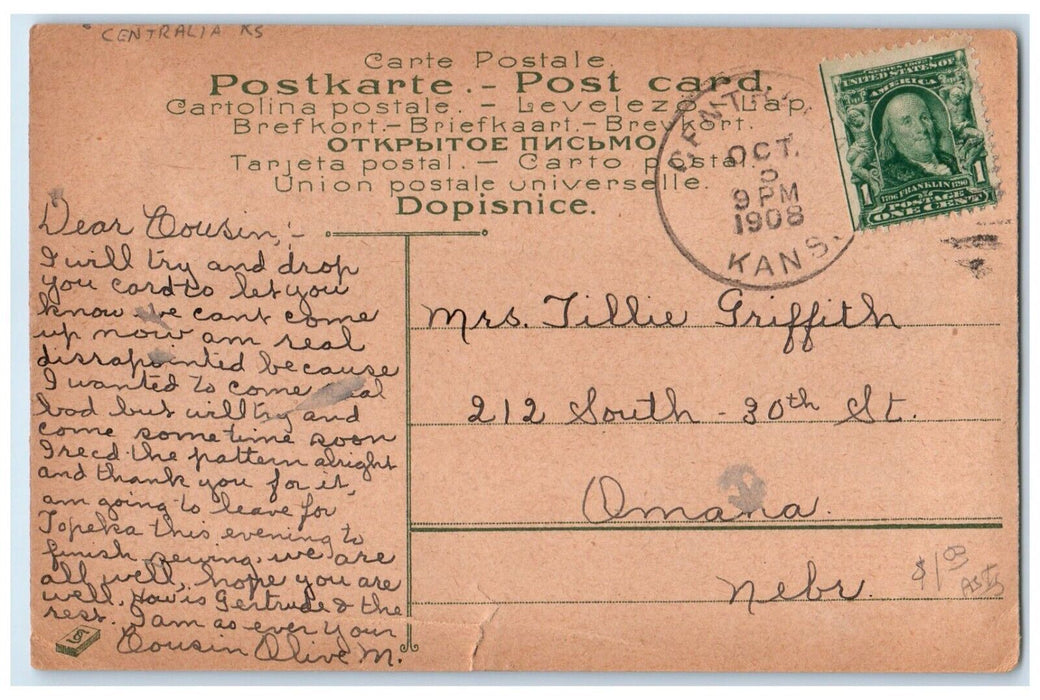 CENTRALIA KS
Carte Postale.
Postkarte. - Post card.
Cartolina postale. - Levelezo-Lap.
Brefkort. - Briefkaart. - Brevkort.
ОТКРЫТОЕ ПИСЬМО.
Tarjeta postal. - Carto postal.
Union postale universelle.
Dopisnice.
OCT.
9 PM
1908
KANS.
UNITED STATES OF
AMERICA
1 FRANKLIN 1
POSTAGE
ONE CENT
Dear Cousin,:-
I will try and drop
you card to let you
know we cant come
up now am real
dissapointed because
I wanted to come real
bad but will try and
come sometime soon
I recd the pattern alright
and thank you for it,
am going to leave for
Topeka this evening to
finish sewing, we are
all well, hope you are
well. How is Gertrude & the
rest. I am as ever your
Cousin Olive M.
Mrs. Tillie Griffith
212 South - 30th St.
Omaha.
Nebr.
$1 03